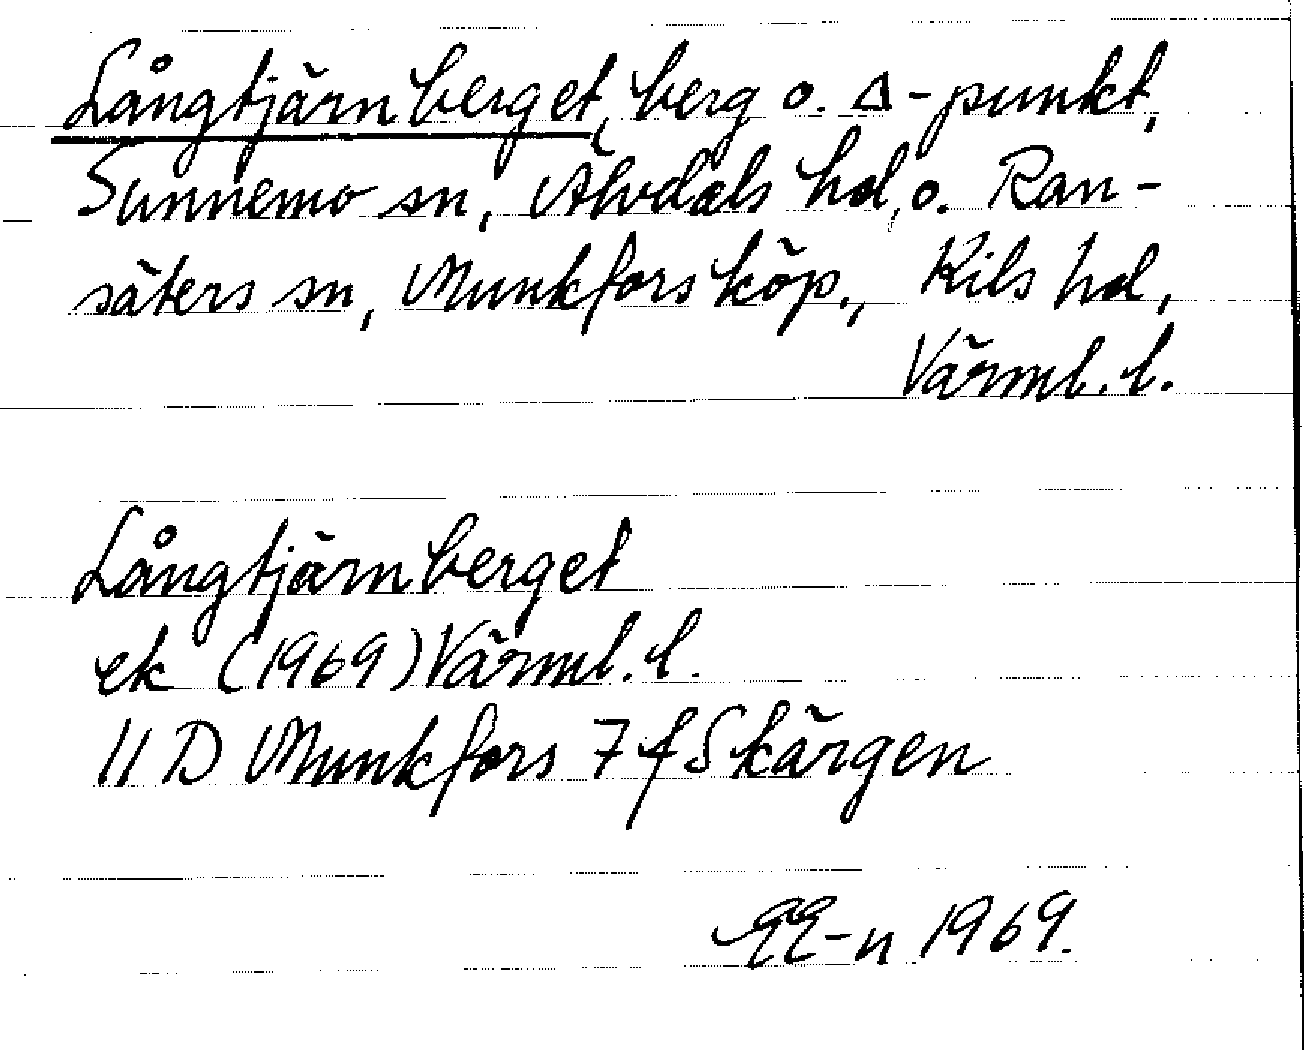 Långtjärnberget, berg o. Δ-punkt,
Sunnemo sn, Älvdals hd, o. Ran-
säters sn, Munkfors köp., Kils hd,
Värml. l.
Långtjärnberget
ek (1969) Värml. l.
11 D Munkfors 7 f Skärgen
EE-n 1969.